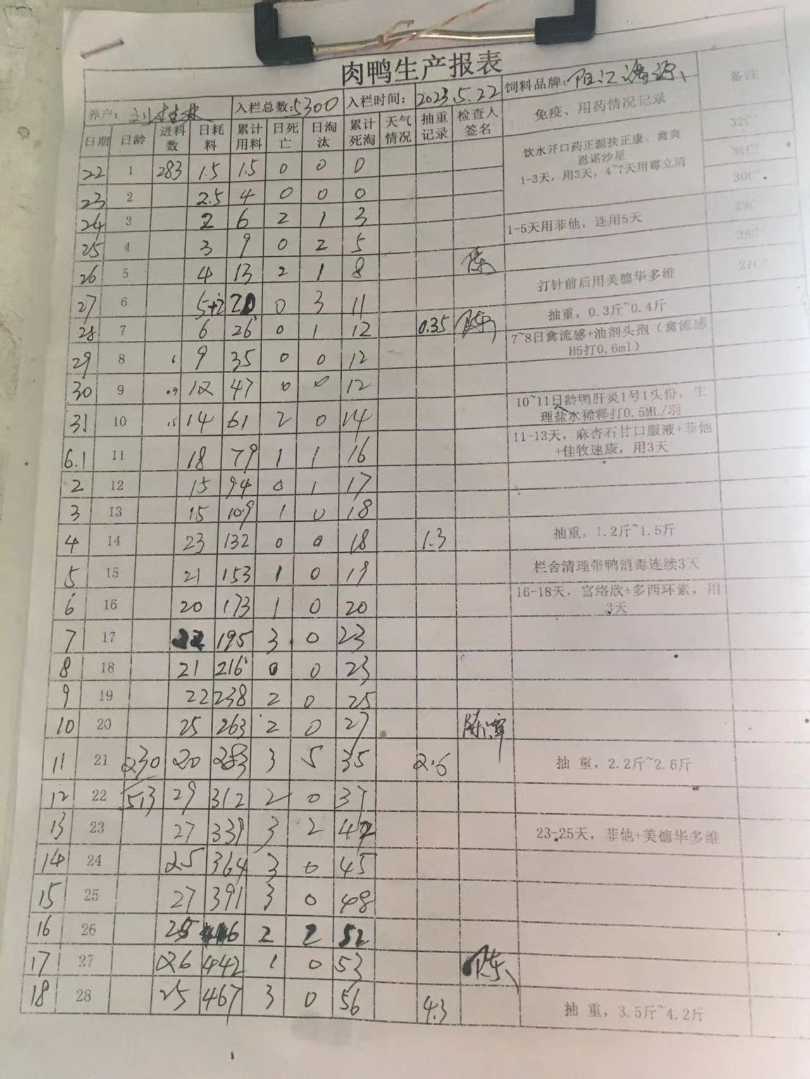 肉鸭生产报表
养户： 入栏总数:5300 入栏时间: 2023.5.22 饲料品牌: 阳江海源
日期 日龄 进料数 日耗料 累计用料 日死亡 日淘汰 累计死淘 天气情况 抽重记录 检查人签名 免疫、用药情况记录 备注
22 1 283 1.5 1.5 0 0 0 饮水开口药正源扶正康、禽爽
恩诺沙星
23 2 2.5 4 0 0 0 1-3天，用3天，4~7天用霉立消
24 3 2 6 2 1 3 1-5天用菲他，连用5天
25 4 3 9 0 2 5
26 5 4 13 2 1 8 打针前后用美德华多维
27 6 5+2 20 0 3 11 抽重，0.3斤~0.4斤
28 7 6 26 0 1 12 0.35 7~8日禽流感+油剂头孢（禽流感
H5打0.6ml）
29 8 9 35 0 0 12
30 9 12 47 0 0 12
31 10 14 61 2 0 14 10~11日龄鸭肝炎1号1头份，生
理盐水稀释打0.5ML/羽
6.1 11 18 79 1 1 16 11-13天，麻杏石甘口服液+菲他
+佳牧速康，用3天
2 12 15 94 0 1 17
3 13 15 109 1 0 18
4 14 23 132 0 0 18 1.3 抽重，1.2斤~1.5斤
5 15 21 153 1 0 19 栏舍清理带鸭消毒连续3天
6 16 20 173 1 0 20 16-18天，宫络欣+多西环素，用
3天
7 17 22 195 3 0 23
8 18 21 216 0 0 23
9 19 22 238 2 0 25
10 20 25 263 2 0 27
11 21 230 20 283 3 5 35 2.6 抽 重，2.2斤~2.6斤
12 22 513 29 312 2 0 37
13 23 27 339 3 2 42 23-25天，菲他+美德华多维
14 24 25 364 3 0 45
15 25 27 391 3 0 48
16 26 25 416 2 2 52
17 27 26 442 1 0 53
18 28 25 467 3 0 56 4.3 抽 重，3.5斤~4.2斤